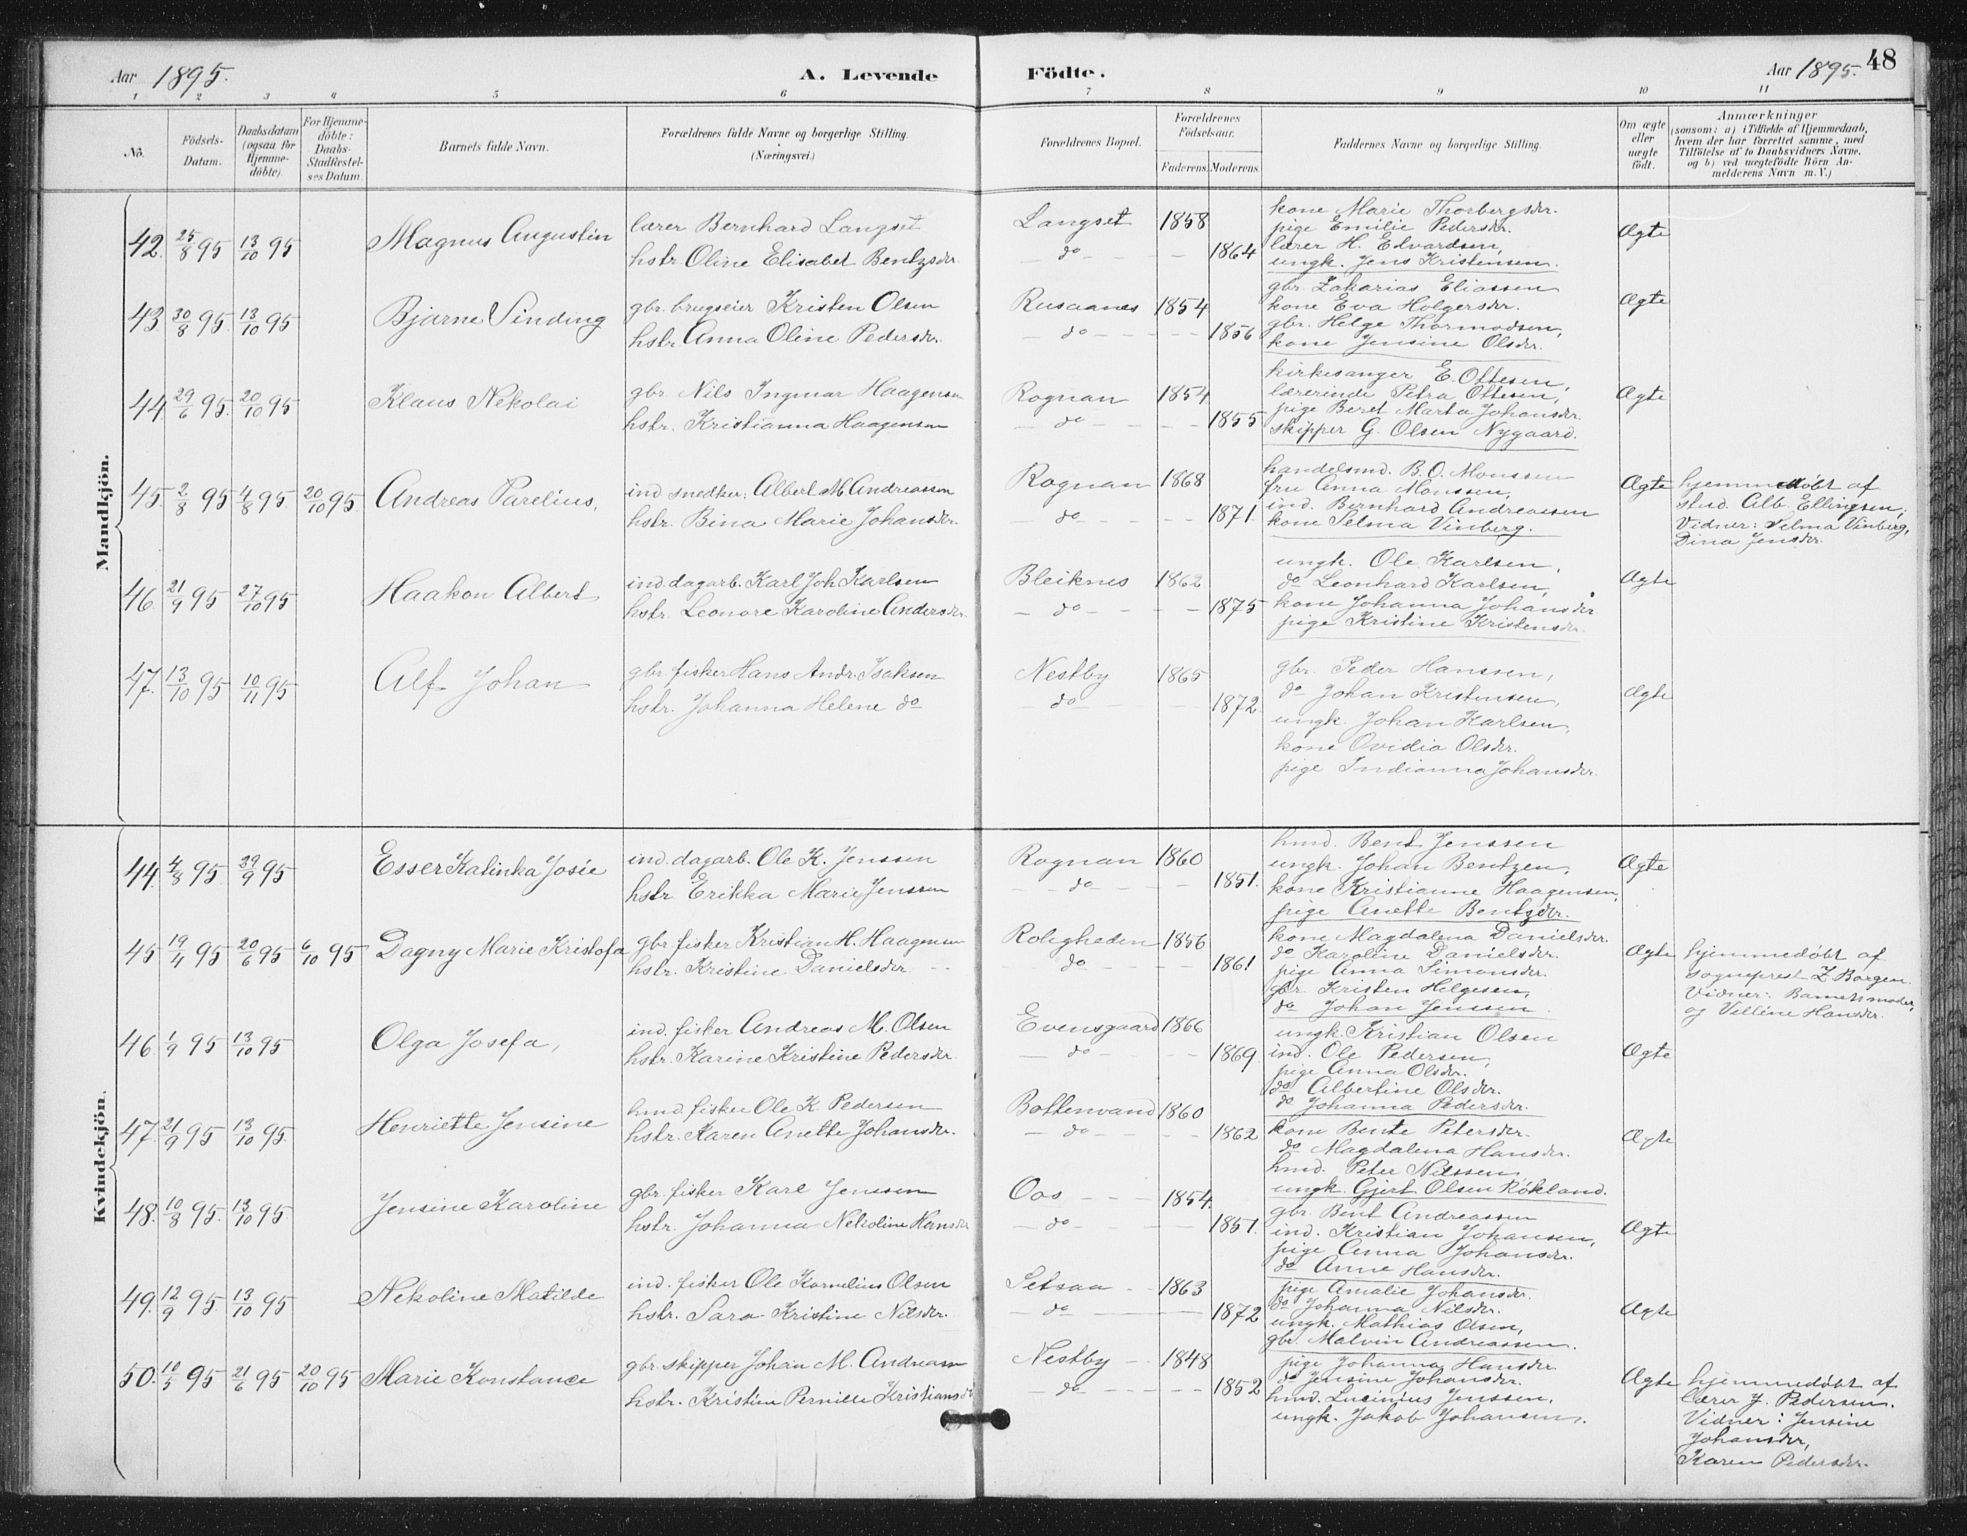 Aar 1895. A. Levende Födte. Aar 1895. 48
1 2 3 4 5 6 7 8 9 10 11
Nô. Födsels-Datum. Daabsdatum (ogsaa for Hjemme-döbte). For Hjemme-döbte: Daabs-Stadfæstel-ses Datum. Barnets fulde Navn. Forældrenes fulde Navne og borgerlige Stilling. (Næringsvei.) Forældrenes Bopæl. Forældrenes Födselsaar. Faderens. Moderens. Faddernes Navne og borgerlige Stilling. Om ægte eller uægte födt. Anmærkninger (saasom: a) i Tilfælde af Hjemmedaab, hvem der har forrettet samme, med Tilföielse af to Daabsvidners Navne, og b) ved uægtefödte Börn An-melderens Navn m. V.)
Mandkjön.
kone Marie Thorbergsdr.
42. 25/8 95 13/10 95 Magnus Augustin lærer Bernhard Langset Langset 1858 pige Emilie Pedersdr. Ægte
hstr. Oline Elisabet Bentzsdr. do 1864 lærer H. Edvardsen,
ungk. Jens Kristensen.
gbr. Zakarias Eliassen
43. 30/8 95. 13/10 95 Bjarne Sinding gbr. brugseier Kristen Olsen Rusaanes 1854 kone Eva Holgersdr. Ægte
hstr. Anna Oline Pedersdr. do 1856 gbr. Helge Thormodsen,
kone Jensine Olsdr.
kirkesanger E. Ottesen,
44 29/6 95. 20/10 95 Klaus Nekolai gbr. Nils Ingmar Haagensen Rognan 1854 lærerinde Petra Ottesen, Ægte
hstr. Kristianna Haagensen do 1855 pige Beret Marta Johansdr.
skipper G. Olsen Nygaard.
handelsmd. B. O. Monssen
45. 2/8 95 4/8 95. 20/10 95 Andreas Parelius, ind. snedker. Albert M. Andreassen Rognan 1868 fru Anna Monssen, Ægte hjemmedøbt af
hstr. Bina Marie Johansdr. do 1871. ind. Bernhard Andreassen stud. Alb. Ellingsen;
kone Selma Vinberg. Vidner: Selma Vinberg,
Dina Jensdr.
ungk. Ole Karlsen,
46. 21/9 95 27/10 95 Haakon Albert ind. dagarb. Karl Joh. Karlsen Bleiknes 1862 do Leonhard Karlsen, Ægte
hstr. Leonore Karoline Andersdr. do 1875 kone Johanna Johansdr
pige Kristine Kristensdr.
47. 13/10 95 10/11 95 Alf Johan gbr. fisker Hans Andr. Isaksen Nestby 1865 gbr. Peder Hanssen,
hstr. Johanna Helene do do 1872. do Johan Kristensen, Ægte
ungk. Johan Karlsen,
kone Ovidia Olsdr.
pige Indianna Johansdr.
Kvindekjön.
hmd. Bent Jenssen
44. 4/8 95. 29/9 95 Esser Katinka Josie ind. dagarb. Ole K. Jenssen Rognan 1860 ungk. Johan Bentzen, Ægte
hstr Erikka Marie Jenssen do 1851. kone Kristianne Haagensen,
pige Anette Bentzdr.
45 19/4 95 20/6 95 6/10 95 Dagny Marie Kristofa gbr. fisker Kristian H. Haagensen Roligheden 1856 kone Magdalena Danielsdr. Ægte hjemmedøbt af
hstr. Kristine Danielsdr. do 1861 do Karoline Danielsdr. sogneprest Z. Borgen.
pige Anna Simonsdr. Vidner: Barnets moder,
gbr. Kristen Helgesen, og Velline Hansdr.
do Johan Jenssen.
46 1/9 95 13/10 95 Olga Josefa, ind. fisker Andreas M. Olsen Evensgaard 1866 ungk. Kristian Olsen
hstr. Karine Kristine Pedersdr. do 1869. ind. Ole Pedersen, Ægte
pige Anna Olsdr.
do Albertine Olsdr.
47. 21/9 95 13/10 95. Henriette Jensine hmd. fisker Ole K. Pedersen Bottenvand 1860 do Johanna Pedersdr.
hstr. Karen Anette Johansdr. do 1862 kone Bente Petersdr. Ægte
do Magdalena Hansdr.
hmd. Peter Nilssen
48. 10/8 95. 13/10 95 Jensine Karoline gbr. fisker Karl Jenssen Oos 1854. ungk. Gjert Olsen Røkland.
hstr. Johanna Nekoline Hansdr do 1851. gbr. Bent Andreassen Ægte
ind. Kristian Johansen,
pige Anna Johansdr.
do Anne Hansdr.
49. 12/9 95. 13/10 95 Nekoline Matilde ind. fisker Ole Kornelius Olsen Setsaa 1863 pige Amalie Johansdr.
hstr. Sara Kristine Nilsdr. do 1872 do Johanna Nilsdr. Ægte
ungk. Mathias Olsen,
gbr. Malvin Andreassen.
50. 10/5 95 21/6 95 20/10 95 Marie Konstance gbr. skipper Johan M. Andreasen Nestby 1848 pige Johanna Hansdr. Ægte hjemmedøbt af
hstr. Kristine Pernille Kristiansd. do 1852 do Jensine Johansdr. lærer J. Pedersen.
hmd. Lucinius Jenssen, Vidner: Jensine
ungk. Jakob Johansen. Johansdr,
Karen Pedersdr.